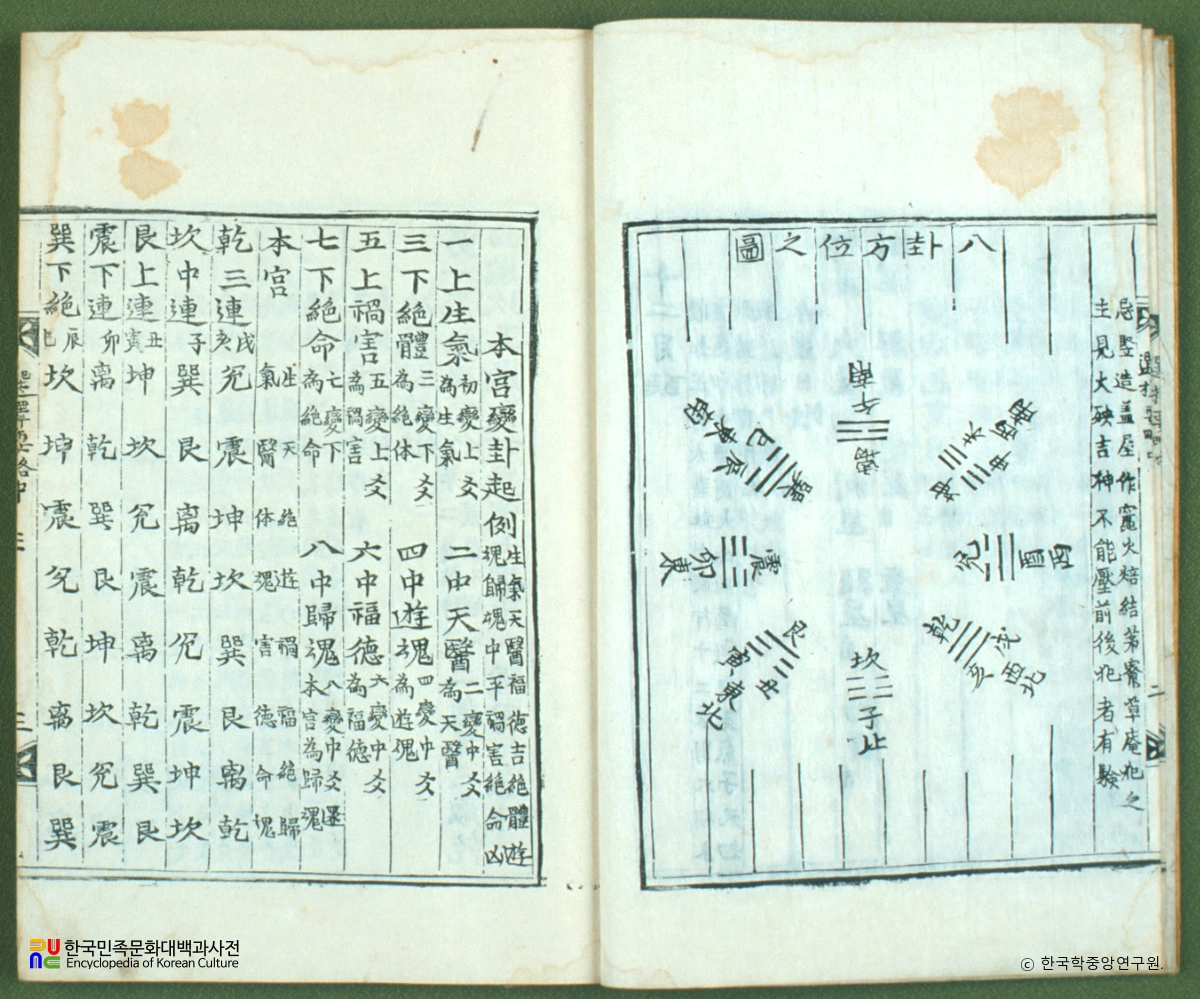 忌竪造盖屋作竈火焙結茅寮草庵犯之
主見大殃吉神不能壓前後犯者有驗
八卦方位之圖
離 午 南
坤 未 申 西南
兌 酉 西
乾 戌 亥 西北
坎 子 北
艮 丑 寅 東北
震 卯 東
巽 辰 巳 東南
二
本宮變卦起例 生氣天醫福德吉絶體遊
魂歸魂中平禍害絶命凶
一上生氣 初變上爻為生氣 二中天醫 二變中爻為天醫
三下絶體 三變下爻為絶体 四中遊魂 四變中爻為遊魂
五上禍害 五變上爻為禍害 六中福德 六變中爻為福德
七下絶命 七變下爻為絶命 八中歸魂 八變中爻還本宮為歸魂
本宮 生氣 天醫 絶体 遊魂 禍害 福德 絶命 歸魂
乾三連 戌亥 兌 震 坤 坎 巽 艮 离 乾
坎中連 子 巽 艮 离 乾 兌 震 坤 坎
艮上連 丑寅 坤 坎 兌 震 离 乾 巽 艮
震下連 卯 离 乾 巽 艮 坤 坎 兌 震
巽下絶 辰巳 坎 坤 震 兌 乾 离 艮 巽
選擇要略中 三
한국민족문화대백과사전
Encyclopedia of Korean Culture
© 한국학중앙연구원.